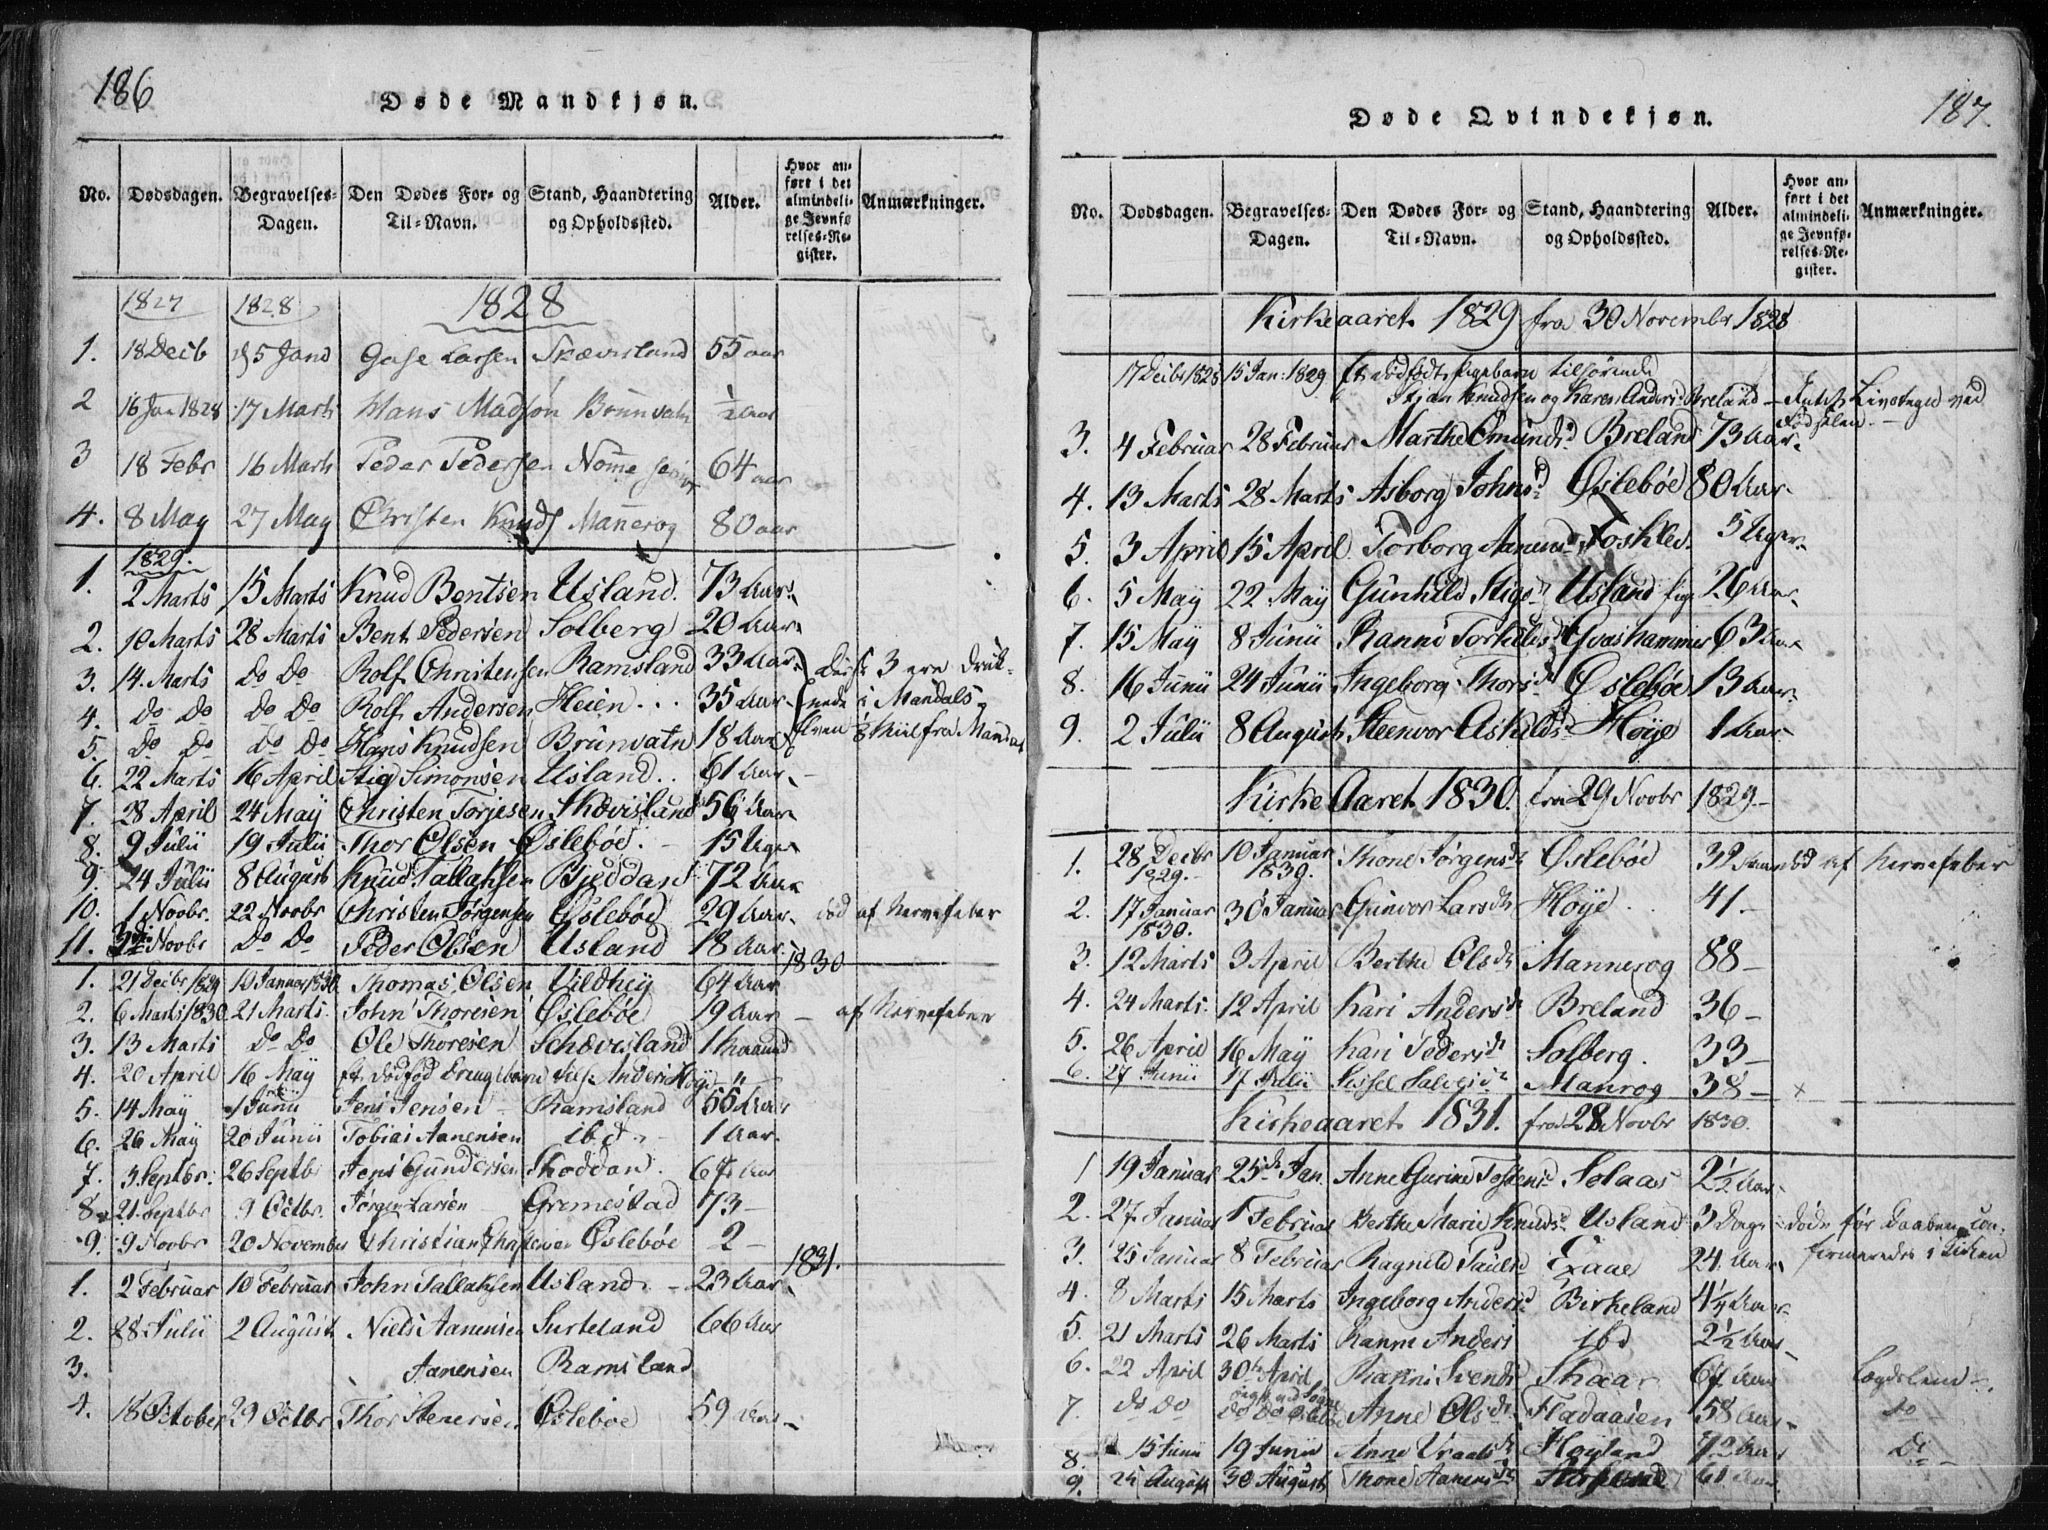 186
Døde Mandkjøn.
No. Dødsdagen. Begravelses-Dagen. Den Dødes For- og Til-Navn. Stand, Haandtering og Opholdssted. Alder. Hvor anført i det almindelige Jevnførelses-Register. Anmærkninger.
1827 1828 1828
1. 18 Decb 5 Jan Larsen Skævisland 55 aar
2 16 Jan 1828 17 Marts Hans Madsøn Brunvatn ½ Aar
3 18 Febr 16 Marts Peder Pedersen Nome 64 aar
4. 8 May 27 May Christen Knuds Mannerog 80 aar
1829.
1. 2 Marts 15 Marts Knud Bentsen Usland. 73 Aar.
2. 10 Marts 28 Marts Bent Pedersen Solberg 20 Aar
3. 14. Marts Do Do Rolf Christensen Ramsland 33 Aar Disse 3 ere druk-
4. Do Do Do Do Rolf Andersen Heien 35 Aar nede i Mandals
5. Do Do Do Do Hans Knudsen Brunvatn 18 Aar Elven fra Mandal
6. 22 Marts 16 April Stig Simonsen Usland 61 Aar
7. 28 April 24 May Christen Torjesen Skævisland 56 Aar
8. 9 Julii 19 Julii Thor Olsen Øslebøe 15 Uger
9. 24 Julii 8 August Knud Tallaksen Bieddan 72 Aar
10. 1 Novbr. 22 Novbr Christen Jørgensen Øslebøe 29 Aar død af Nervefeber
11. 3 Novbr Do Do Peder Olsen Usland 18 Aar
1830
1. 21 Decbr 1829 10 Januar 1830 Thomas Olsen Vildhey 64 Aar
2. 6 Marts 1830 21 Marts John Thoresen Øslebøe 19 Aar af Nervefeber
3. 13 Marts Do Do Ole Thoresen Schævisland 1 Maaned
4. 20 April 16 May et dødfød Drengebarn Anders Høye "
5. 14 May 1 Junii Jens Jensen Ramsland 55 Aar
6. 26 May 20 Junii Tobias Aanensen ibd 1 Aar.
7. 3 Septbr. 26 Septbr Jens Gundersen Skoddan. 67 Aar
8. 21 Septbr 9 Octbr. Jørgen Larsen Grimestad 73
9. 9 Novbr 20 November Christian Øslebøe 2
1831.
1. 2 Februar 10 Februar John Tallaksen Usland 23 Aar
2. 28 Julii 2 August Niels Aanensen Surteland 66 Aar
3. Aanensen Ramsland
4. 18 October 29 Octbr Thor Stenersen Øslebøe 59 Aar
187.
Døde Qvindekjøn.
No. Dødsdagen. Begravelses-Dagen. Den Dødes For- og Til-Navn. Stand, Haandtering og Opholdssted. Alder. Hvor anført i det almindelige Jevnførelses-Register. Anmærkninger.
Kirkeaaret 1829 fra 30 November 1828
17 Decbr 1828 15 Jan: 1829 et dødfødt Pigebarn tilhørende
Stian Knudsen og Karen Anders Breland Intet Livstegn ved Fødselen
3. 4 Februar 28 Februar Marthe Omundsd Breland 73 Aar
4. 13 Marts 28 Marts Asborg Johnsd Øslebøe 80 Aar
5. 3 April 15 April Torborg Aanensd Foskled 5 Uger
6. 5 May 22 May Gunhild Stigsd Usland 26 Aar
7. 15 May 8 Junii Ranni Torkildsd Qvashammer 63 Aar
8. 16 Junii 24 Junii Ingeborg Thorsd Øslebøe 13 Aar
9. 2 Julii 8 August Steenvor Askildsd Høye 1 Aar
Kirke Aaret 1830. fra 29 Novbr 1829
1. 28 Decbr 1829. 10 Januar 1830. Thone Jørgensd Øslebøe 32 død af Nervefeber
2. 17 Januar 1830. 30 Januar Gunvor Larsd Høye 41
3. 12 Marts 3 April Berthe Olsd Mannerog 88
4. 24 Marts. 12 April Kari Andersd Breland 36
5. 26 April 16 May Kari Pedersd Solberg. 33
6. 27 Junii 17 Julii Sissel Salvesd Manrog 38
Kirkeaaret 1831. fra 28 Novbr 1830.
1 19 Januar 25de Jan. Anne Gurine Tostensd Solaas 2½ Aar
2. 27 Januar 1 Februar Berthe Marie Knudsd Usland 3 Dage døde før Daaben con-
3. 25 Januar 8 Februar Ragnild Paulsd Eaae 24 Aar firmeredes i Kirken
4. 8 Marts 15 Marts Ingeborg Andersd Birkeland 4¼ Aar
5. 21 Marts 26 Marts Ranni Anders ibd 2½ Aar
6. 22 April 30te April Ranni Svends Skaar 64 Aar Lægdslem
7. Do Do Do Do Anne Olsd Fladaasen 58 Aar do
8. 15 Junii 19 Junii Anne Høyland Aar Do
9. 25 August 30 August Thone Aanensd 61 Aar